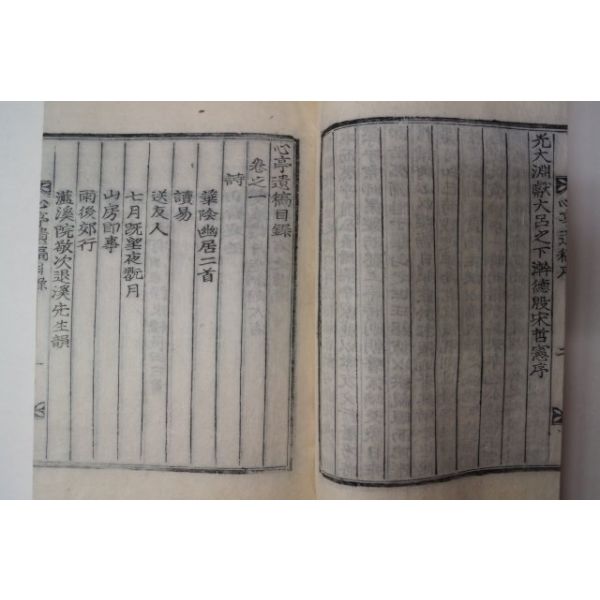 光大淵獻大呂之下澣德殷宋哲憲序
心亭遺稿序
二
心亭遺稿目錄
卷之一
詩
華陰幽居二首
讀易
送友人
七月旣望夜翫月
山房卽事
雨後郊行
灆溪院敬次退溪先生韻
心亭遺稿目錄
一